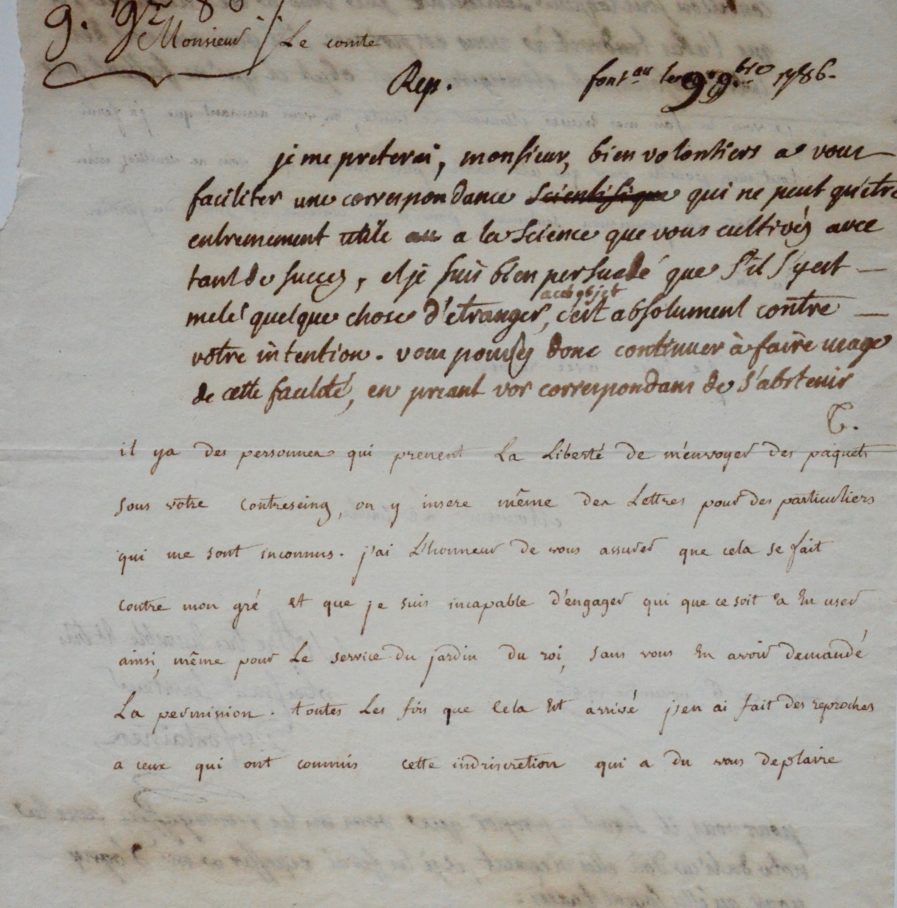 9. 9bre 86
Monsieur Le comte
Rep. font.au le 9 9bre 1786.
je me preterai, monsieur, bien volontiers a vous
faciliter une correspondance scientifique qui ne peut qu'etre
extremement utile au a la science que vous cultivés avec
tant de succes, et je suis bien persuadé que s'il s'y est
melé quelque chose d'etranger a cet objet, c'est absolument contre
votre intention. vous pouvés donc continuer à faire usage
de cette faculté, en priant vos correspondans de s'abstenir
T.
il ya des personnes qui prenent La Liberté de m'envoyer des paquets
sous votre Contreseing, on y insere même des Lettres pour des particuliers
qui me sont inconnus. j'ai L'honneur de vous assurer que cela se fait
contre mon gré et que je suis incapable d'engager qui que ce soit a En user
ainsi, même pour Le service du jardin du roi, sans vous En avoir demandé
La permission. toutes Les fois que Cela Est arrivé j'en ai fait des reproches
a ceux qui ont commis cette indiscretion qui a du vous deplaire